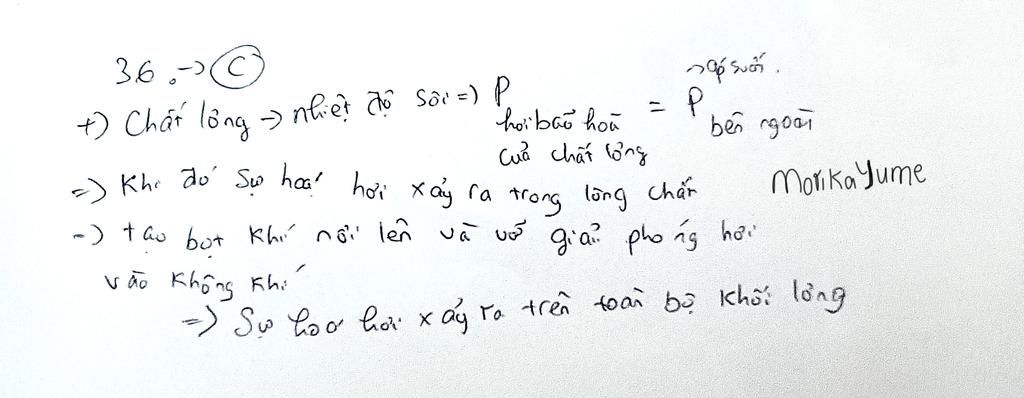 36. → C
→ áp suất.
+) Chất lỏng → nhiệt độ sôi => P hơi bão hoà của chất lỏng = P bên ngoài
=) Khi đó sự hoá hơi xảy ra trong lòng chất
MorikaYume
-) tạo bọt khí nổi lên và vỡ giải phóng hơi
vào không khí
=> Sự hoá hơi xảy ra trên toàn bộ khối lỏng